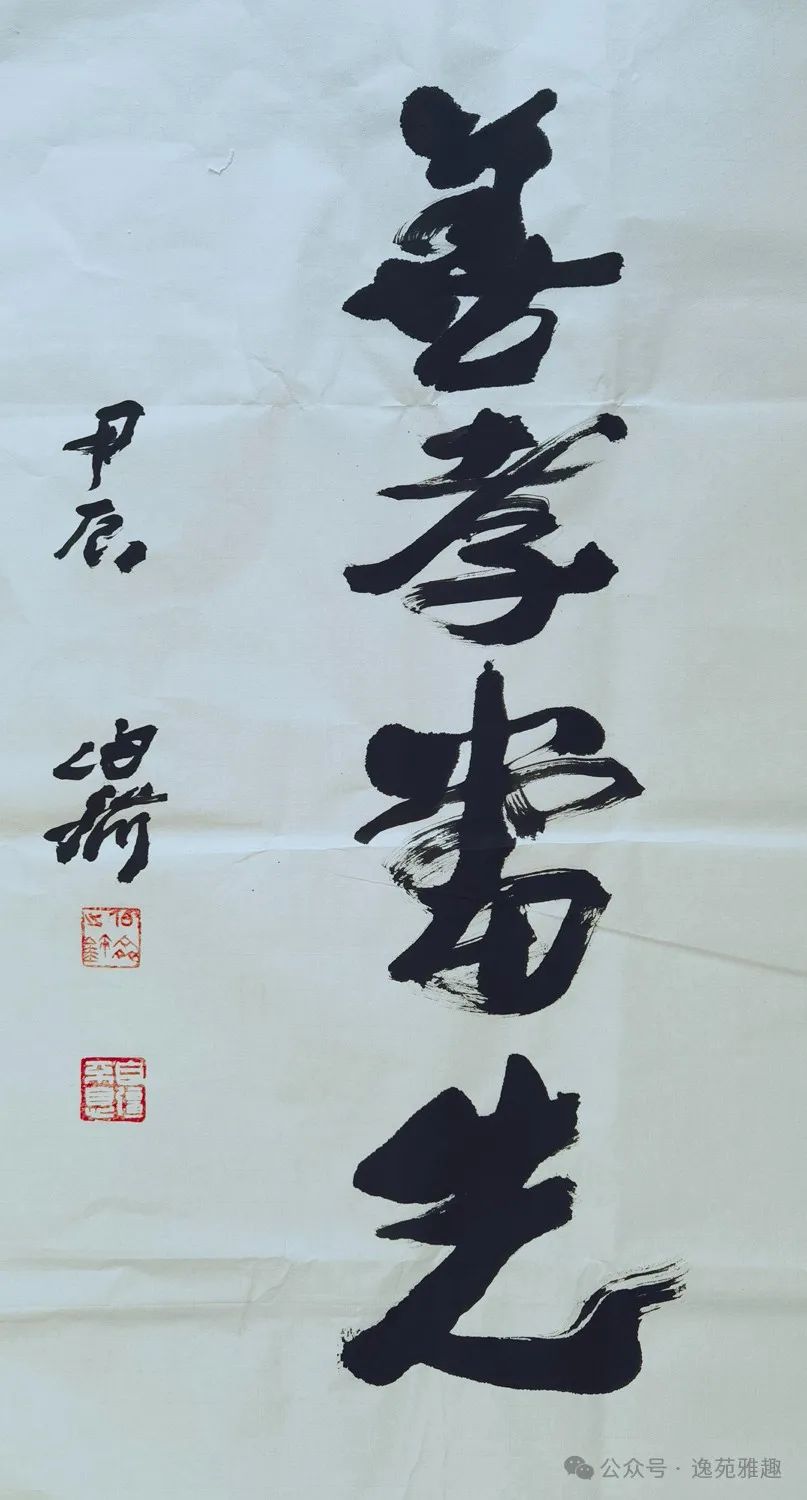 善孝當先
甲辰
公众号 · 逸苑雅趣